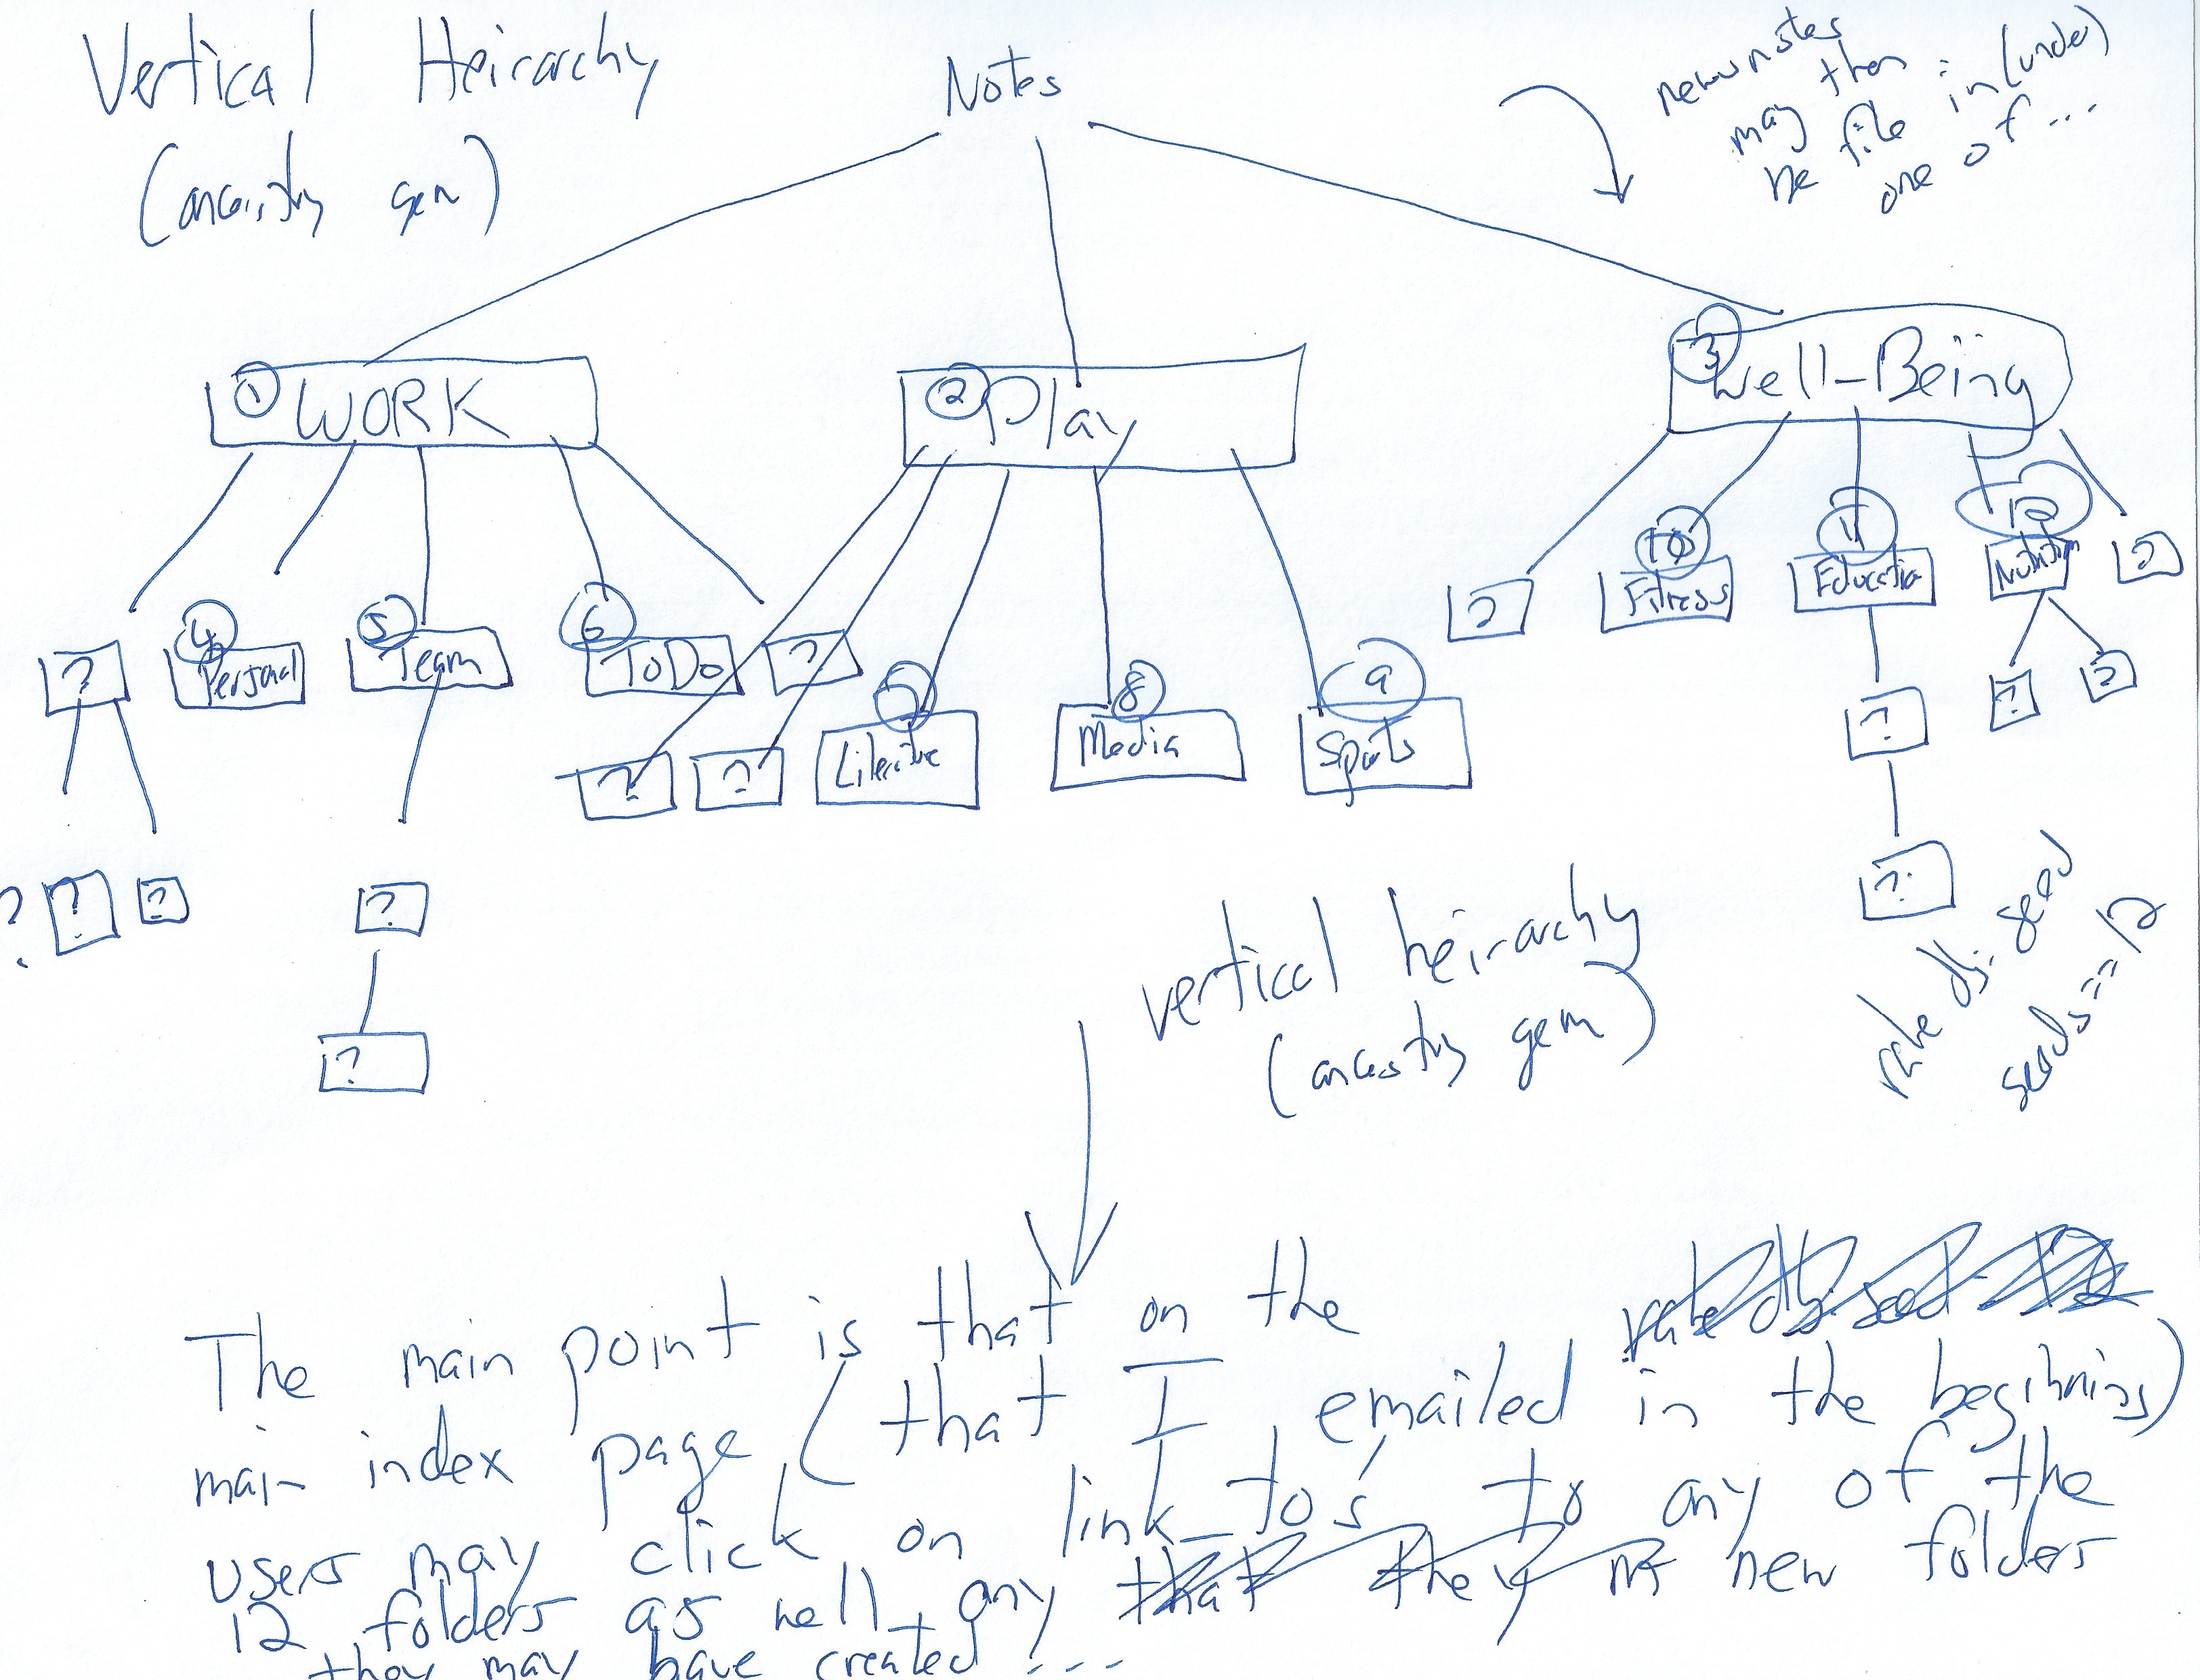 Vertical Heirarchy
(ancestry gem)
Notes
new notes
may then :
be file in (under)
one of ...
1 WORK
2 Play
3 Well-Being
? 
4 Personal
5 Team
6 ToDo
?
?
?
7 Literature
8 Media
9 Sports
?
10 Fitness
11 Education
12 Nutrition
?
?
?
?
?
?
? ? ?
?
?
vertical heirarchy
(ancestry gem)
rake db:seed
seeds == 12
The main point is that on the
main index page (that I emailed in the beginning)
users may click on link_to's to any of the
12 folders as well any new folders
they may have created ...